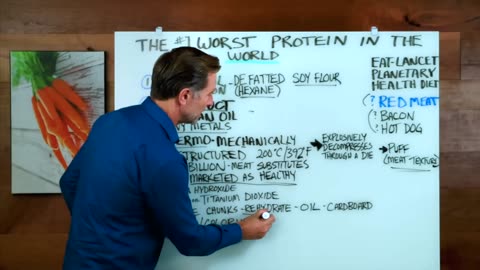 THE #1 WORST PROTEIN IN THE
WORLD
DE FATTED SOY FLOUR
(HEXANE)
OIL
METALS
MECHANICALLY
STRUCTURED 200°C/392°F
BILLION-MEAT SUBSTITUTES
MARKETED AS HEALTHY
HYDROXIDE
TITANIUM DIOXIDE
CHUNKS-REHYDRATE-OIL-CARDBOARD
→EXPLOSIVELY
DECOMPRESSES
THROUGH A DIE
EAT-LANCET
PLANETARY
HEALTH DIET
RED MEAT
BACON
HOT DOG
→PUFF
(MEAT-TEXTURE)